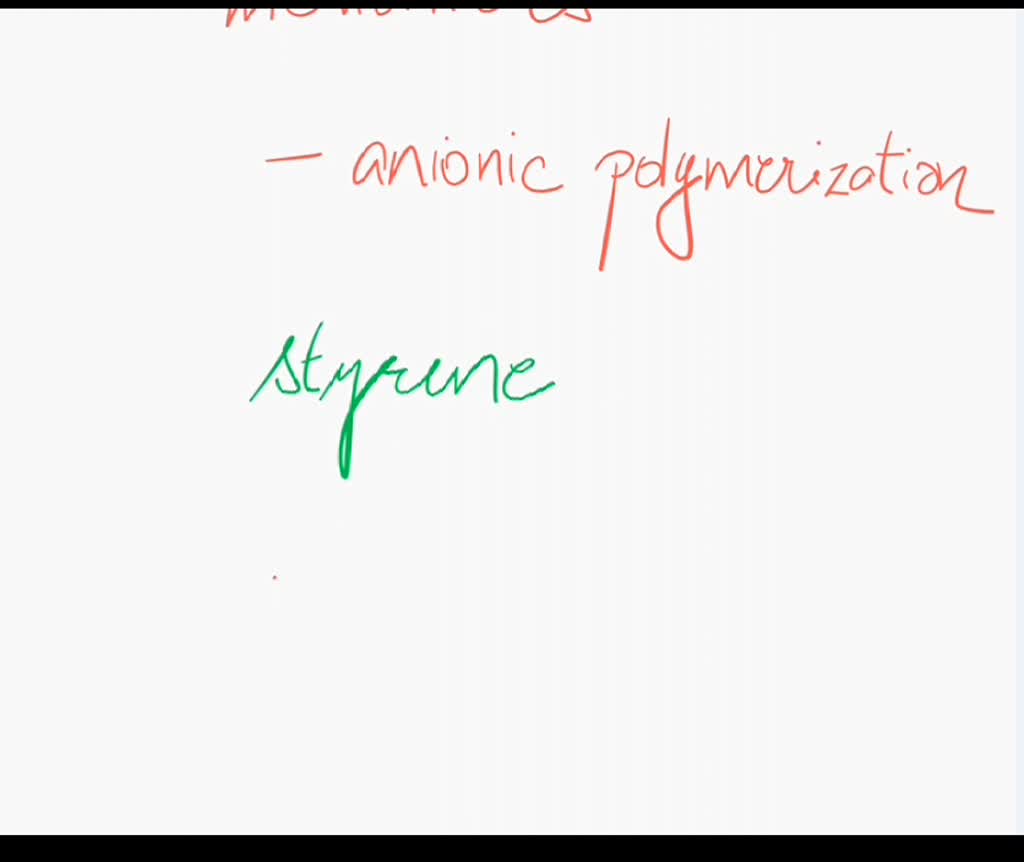 - anionic polymerization
styrene